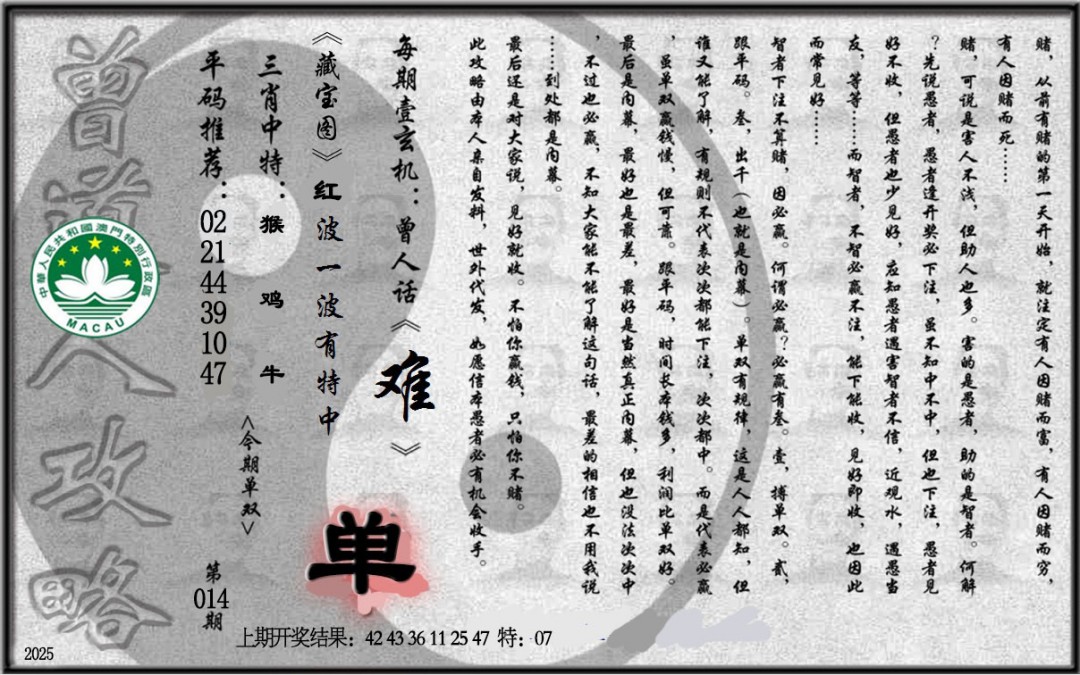 赌，从前有赌的第一天开始，就注定有人因赌而富，有人因赌而穷，
有人因赌而死……
赌，可说是害人不浅，但助人也多。害的是愚者，助的是智者。何解
？先说愚者，愚者逢开奖必下注，虽不知中不中，但也下注，愚者见
好不收，但愚者也少见好，应知愚者遇害智者不信，近观水，遇愚当
友，等等……而智者，不智必赢不注，能下能收，见好即收，也因此
而常见好……
智者下注不算赌，因必赢。何谓必赢？必赢有叁。壹，搏单双。贰，
跟平码。叁，出千（也就是内幕）。单双有规律，这是人人都知，但
谁又能了解，有规则不代表次次都能下注，次次都中。而是代表必赢
，虽单双赢钱慢，但可靠。跟平码，时间长本钱多，利润比单双好。
最后是内幕，最好也是最差，最好是当然真正内幕，但也没法次次中
，不过也必赢，不知大家能不能了解这句话，最差的相信也不用我说
……到处都是内幕。
最后还是对大家说，见好就收。不怕你赢钱，只怕你不赌。
此攻略由本人亲自发料，世外代发，如愿信本愚者必有机会收手。
每期壹玄机：曾人话《难》
《藏宝图》红波一波有特中
三肖中特：猴 鸡 牛
平码推荐：02 21 44 39 10 47
<今期单双>
单
第014期
曾道人攻略
中華人民共和國澳門特別行政區
MACAU
上期开奖结果：42 43 36 11 25 47 特：07
2025